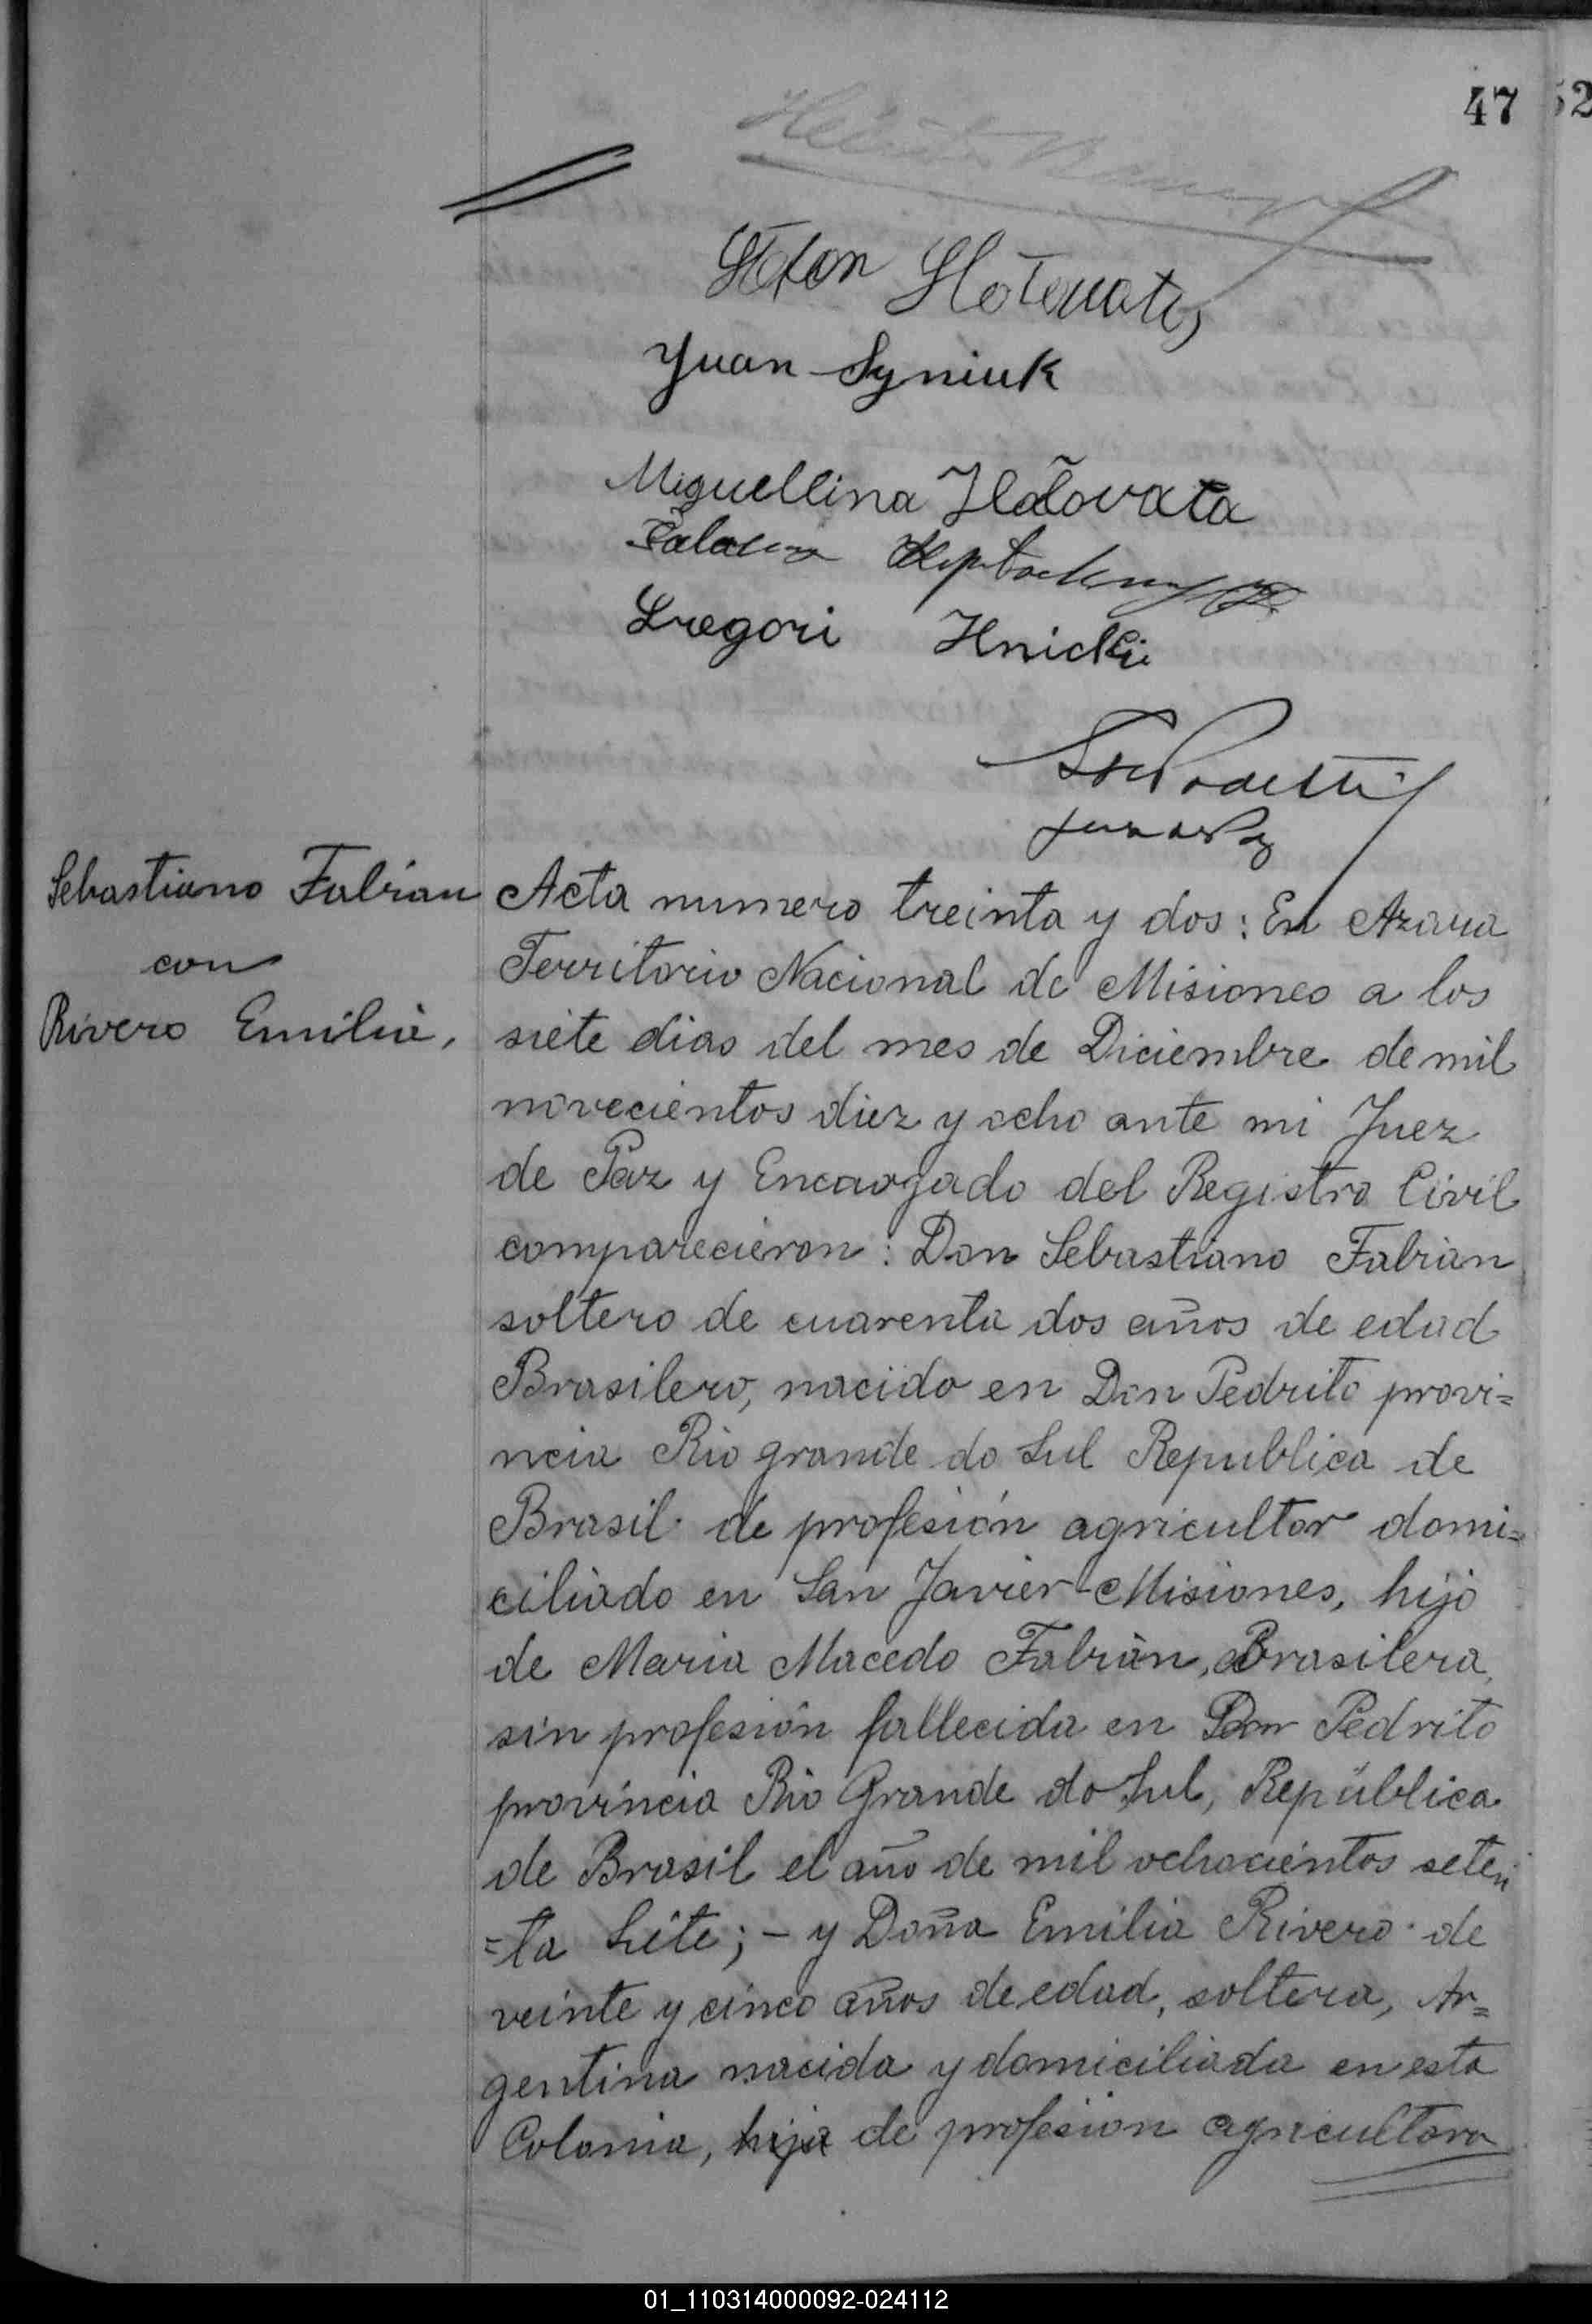 47
52
Juan Syniuk
Miguellina
Gregori Hnicki
Sebastiano Fabian
con
Rivero Emilia,
Acta numero treinta y dos: En Azara
Territorio Nacional de Misiones a los
siete dias del mes de Diciembre de mil
novecientos diez y ocho ante mi Juez
de Paz y Encargado del Registro Civil
comparecieron: Don Sebastiano Fabian
soltero de cuarenta dos años de edad
Brasilero, nacido en Don Pedrito provi=
ncia Rio grande do Sul Republica de
Brasil de profesión agricultor domi=
ciliado en San Javier-Misiones, hijo
de Maria Macedo Fabián, Brasilera,
sin profesión fallecida en Don Pedrito
provincia Rio Grande do Sul, República
de Brasil el año de mil ochocientos seten
=ta Siete; - y Doña Emilia Rivero de
veinte y cinco años de edad, soltera, Ar=
gentina nacida y domiciliada en esta
Colonia, hija de profesion agricultora
01_110314000092-024112